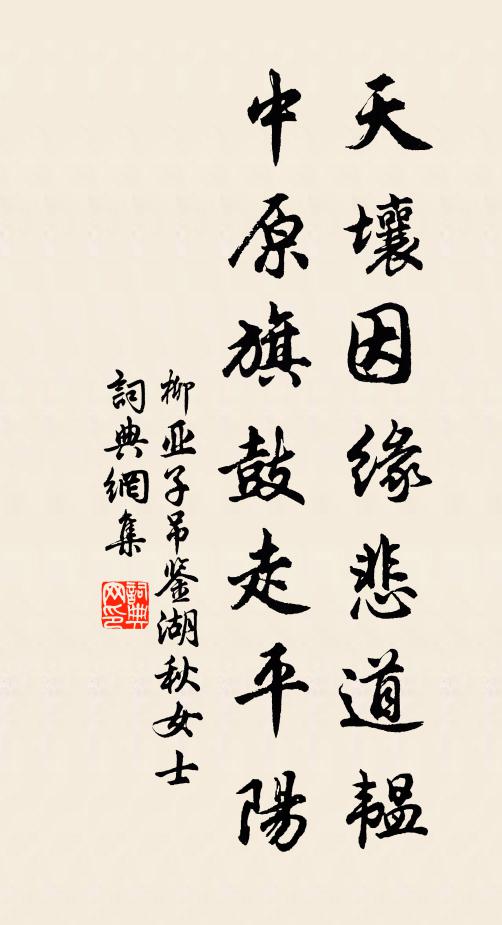 天壤因緣悲道韞
中原旗鼓走平陽
柳亚子吊鉴湖秋女士
詞典網集
詞典网印